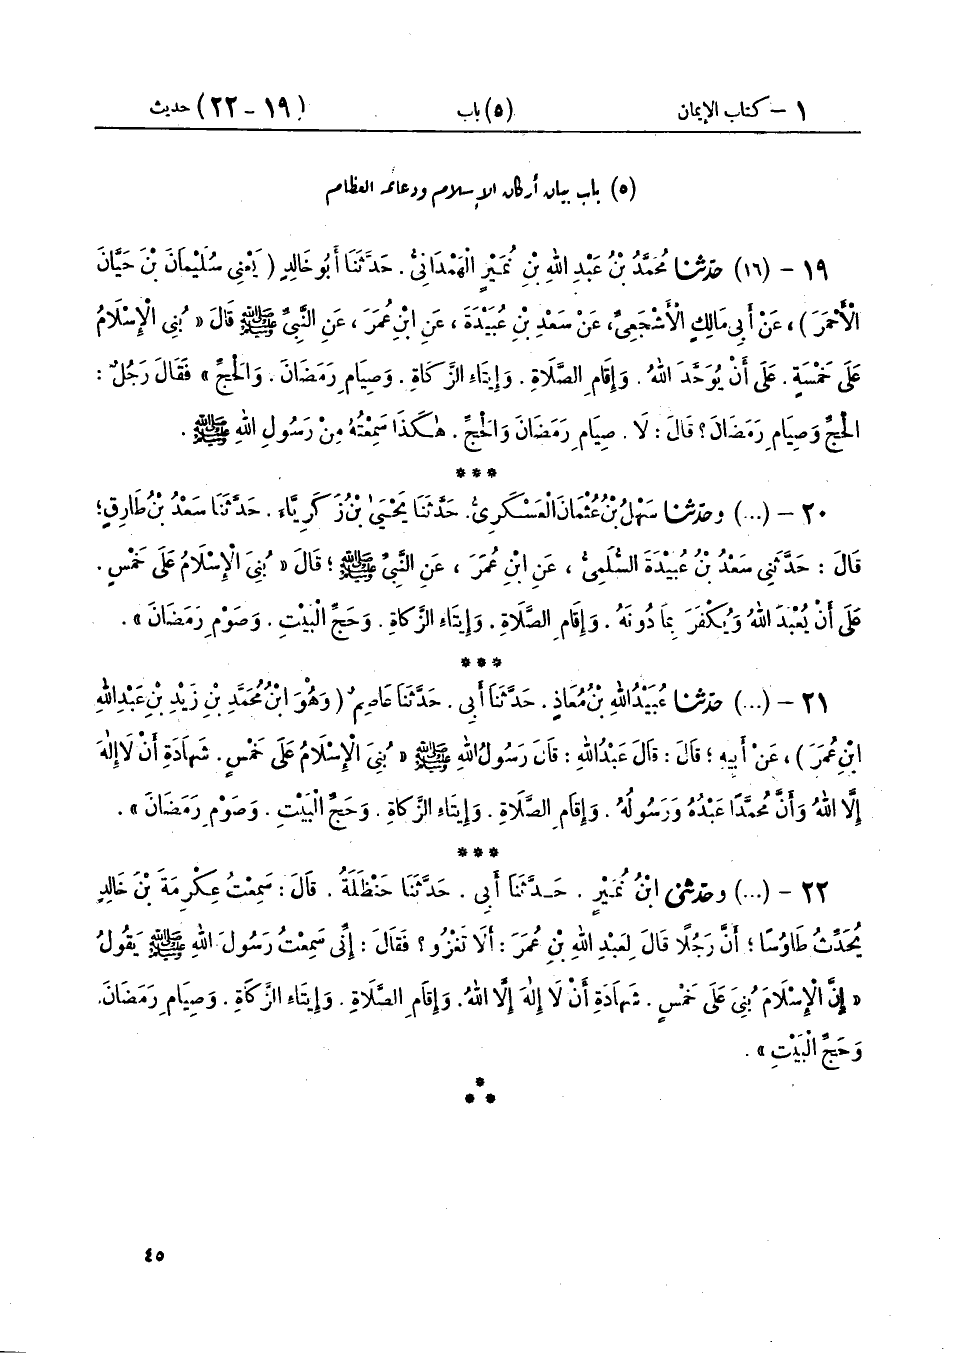 ١ – كتاب الإيمان (٥) باب (١٩ – ٢٢) حديث
(٥) باب بيان أركان الإسلام ودعائمه العظام
١٩ – (١٦) حدّثنا مُحَمَّدُ بْنُ عَبْدِ اللهِ بْنِ نُمَيْرٍ الْهَمْدَانِيُّ . حَدَّثَنَا أَبُو خَالِدٍ ( يَعْنِي سُلَيْمَانَ بْنَ حَيَّانَ
الْأَحْمَرَ ) ، عَنْ أَبِي مَالِكٍ الْأَشْجَعِيِّ، عَنْ سَعْدِ بْنِ عُبَيْدَةَ ، عَنِ ابْنِ عُمَرَ ، عَنِ النَّبِيِّ ﷺ قَالَ « بُنِيَ الْإِسْلَامُ
عَلَى خَمْسَةٍ . عَلَى أَنْ يُوَحَّدَ اللهُ . وَإِقَامِ الصَّلَاةِ . وَإِيتَاءِ الزَّكَاةِ . وَصِيَامِ رَمَضَانَ . وَالْحَجِّ » فَقَالَ رَجُلٌ :
الْحَجِّ وَصِيَامِ رَمَضَانَ ؟ قَالَ : لَا . صِيَامِ رَمَضَانَ وَالْحَجِّ . هٰكَذَا سَمِعْتُهُ مِنْ رَسُولِ اللهِ ﷺ .
***
٢٠ – (...) وحدّثنا سَهْلُ بْنُ عُثْمَانَ الْعَسْكَرِيُّ. حَدَّثَنَا يَحْيَىٰ بْنُ زَكَرِيَّاءَ . حَدَّثَنَا سَعْدُ بْنُ طَارِقٍ؛
قَالَ : حَدَّثَنِي سَعْدُ بْنُ عُبَيْدَةَ السُّلَمِيُّ ، عَنِ ابْنِ عُمَرَ ، عَنِ النَّبِيِّ ﷺ ؛ قَالَ « بُنِيَ الْإِسْلَامُ عَلَى خَمْسٍ .
عَلَى أَنْ يُعْبَدَ اللهُ وَيُكْفَرَ بِمَا دُونَهُ . وَإِقَامِ الصَّلَاةِ . وَإِيتَاءِ الزَّكَاةِ . وَحَجِّ الْبَيْتِ . وَصَوْمِ رَمَضَانَ » .
***
٢١ – (...) حدّثنا عُبَيْدُ اللهِ بْنُ مُعَاذٍ . حَدَّثَنَا أَبِي . حَدَّثَنَا عَاصِمٌ ( وَهُوَ ابْنُ مُحَمَّدِ بْنِ زَيْدِ بْنِ عَبْدِ اللهِ
ابْنِ عُمَرَ ) ، عَنْ أَبِيهِ ؛ قَالَ : قَالَ عَبْدُ اللهِ : قَالَ رَسُولُ اللهِ ﷺ « بُنِيَ الْإِسْلَامُ عَلَى خَمْسٍ . شَهَادَةِ أَنْ لَا إِلٰهَ
إِلَّا اللهُ وَأَنَّ مُحَمَّدًا عَبْدُهُ وَرَسُولُهُ . وَإِقَامِ الصَّلَاةِ . وَإِيتَاءِ الزَّكَاةِ . وَحَجِّ الْبَيْتِ . وَصَوْمِ رَمَضَانَ » .
***
٢٢ – (...) وحدّثني ابْنُ نُمَيْرٍ . حَدَّثَنَا أَبِي . حَدَّثَنَا حَنْظَلَةُ . قَالَ : سَمِعْتُ عِكْرِمَةَ بْنَ خَالِدٍ
يُحَدِّثُ طَاوُسًا ؛ أَنَّ رَجُلًا قَالَ لِعَبْدِ اللهِ بْنِ عُمَرَ : أَلَا تَغْزُو ؟ فَقَالَ : إِنِّي سَمِعْتُ رَسُولَ اللهِ ﷺ يَقُولُ
« إِنَّ الْإِسْلَامَ بُنِيَ عَلَى خَمْسٍ . شَهَادَةِ أَنْ لَا إِلٰهَ إِلَّا اللهُ. وَإِقَامِ الصَّلَاةِ . وَإِيتَاءِ الزَّكَاةِ . وَصِيَامِ رَمَضَانَ.
وَحَجِّ الْبَيْتِ » .
*
* *
٤٥